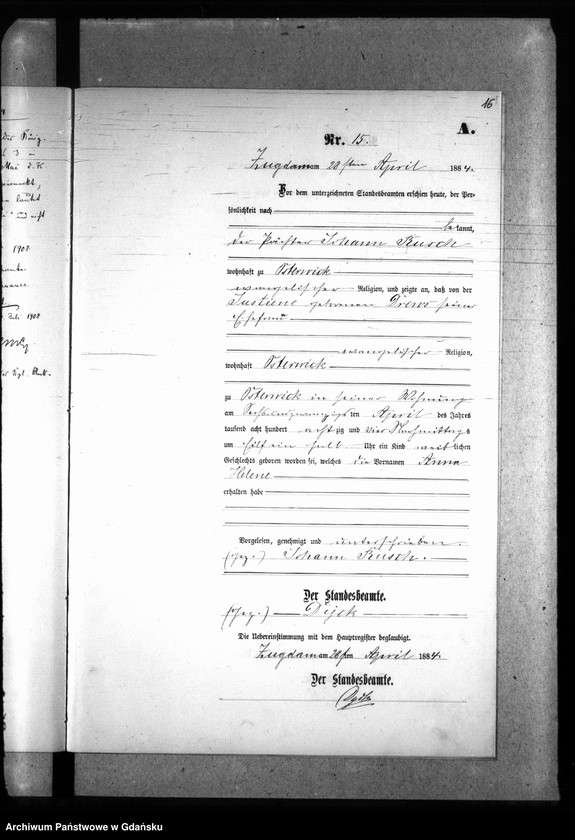 16
A.
Nr. 15.
Zugdam am 28 ten April 1884.
Vor dem unterzeichneten Standesbeamten erschien heute, der Per-
sönlichkeit nach
be kannt,
der Pächter Johann Kusch
wohnhaft zu Osterwick
evangelischer Religion, und zeigte an, daß von der
Justiene geborenen Drews seiner
Ehefrau
evangelischer Religion,
wohnhaft Osterwick
zu Osterwick in seiner Wohnung
am Sechsundzwanzigs ten April des Jahres
tausend acht hundert acht zig und vier Nachmittags
um Uhr ein Kind weib lichen
Geschlechts geboren worden sei, welches die Vornamen Anna
Helene
erhalten habe
Vorgelesen, genehmigt und unterschrieben.
(gez.) Johann Kusch.
Der Standesbeamte.
(gez.) Dyck
Die Uebereinstimmung mit dem Hauptregister beglaubigt.
Zugdam am 28 ten April 1884.
Der Standesbeamte.
Dyck
1908.
Juli 1908
Archiwum Państwowe w Gdańsku